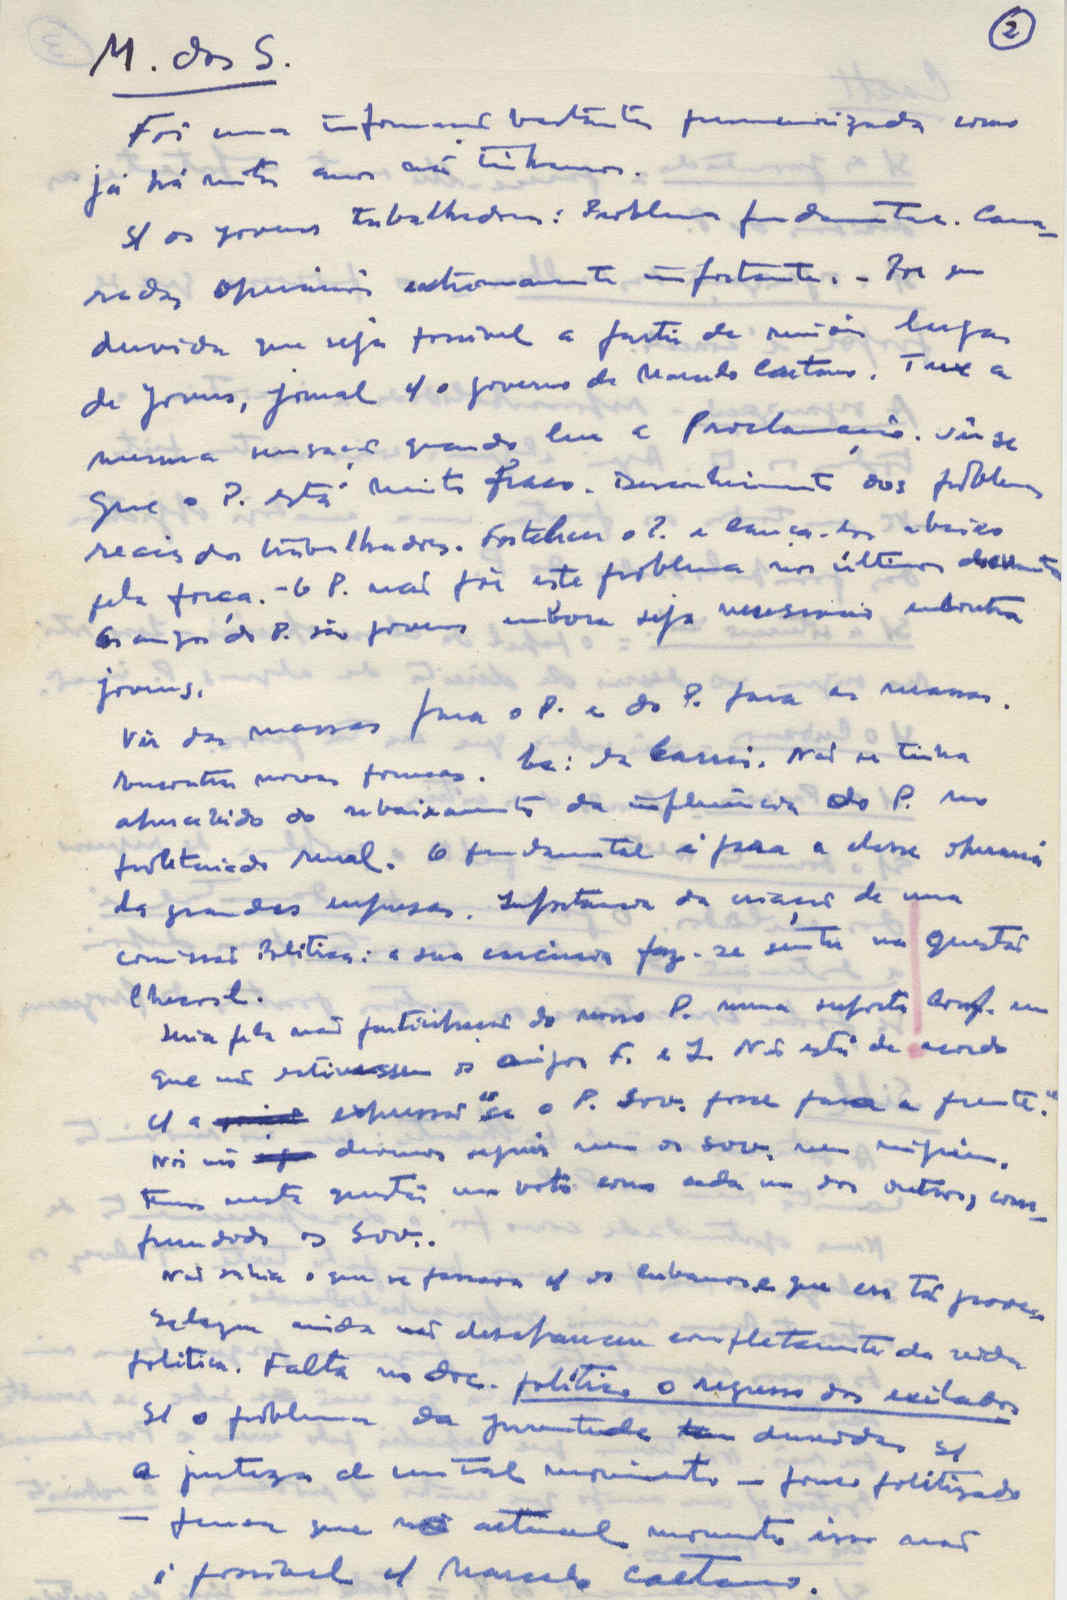 2
M. dos S.
Foi uma informação bastante pormenorizada como
já há muitos anos não tinhamos.
S/ os jovens trabalhadores: Problema fundamental. Cama-
radas operários extremamente importante. - Põe em
duvida que seja possivel a partir de reunião
de jovens, jornal c/ o governo de Marcelo Caetano. Teve a
mesma sensação quando leu a Proclamação. Vê-se
que o P. está muito fraco. Desconhecimento dos problemas
reais dos trabalhadores. Fortalecer o P. e lança-los abaixo
pela força. - O P. não pôs este problema nos últimos documentos
Os amigos do P. são jovens embora seja necessário encontrar
jovens.
Vir das massas para o P. e do P. para as massas.
Encontrar novas formas. Ex: da Carris. Não se tinha
apercebido do rebaixamento da influência do P. no
proletariado rural. O fundamental é para a classe operária
das grandes empresas. Importancia da criação de uma
comissão Politica: a sua carência faz-se sentir na questão
Checosl.
Seria pela não participação do nosso P. numa suposta Conf. em
que não estivessem os amigos F. e I. Não está de acordo
c/ a expressão "se o P. Sov. fosse para a frente."
Nós não devemos seguir nem os sov. nem ninguém.
Temos nesta questão um voto como cada um dos outros, com-
preendido os Sov..
Não sabia o que se passava c/ os cubanos e que era tão grave
Salazar ainda não desapareceu completamente da vida
politica. Falta no doc. politico o regresso dos exilados
S/ o problema da juventude duvidas s/
a justeza de um tal movimento - pouco politizado
- pensa que no actual momento isso não
é possivel c/ Marcelo Caetano.